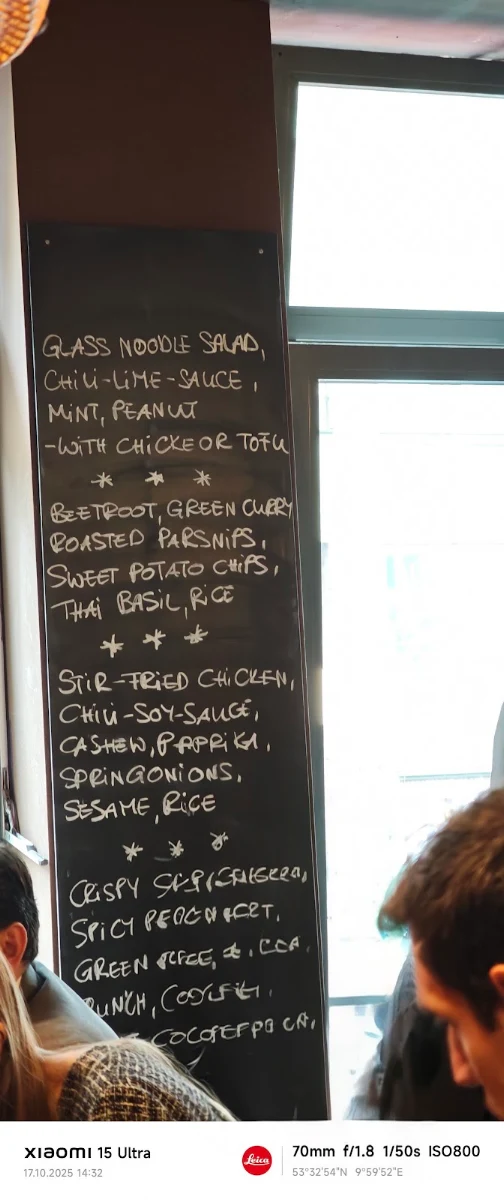 GLASS NOODLE SALAD,
CHILI-LIME-SAUCE,
MINT, PEANUT
-WITH CHICKE OR TOFU
* * *
BEETROOT, GREEN CURRY
ROASTED PARSNIPS,
SWEET POTATO CHIPS,
THAI BASIL, RICE
* * *
STIR-FRIED CHICKEN,
CHILI-SOY-SAUCE,
CASHEW, PAPRIKA,
SPRINGONIONS,
SESAME, RICE
* * *
CRISPY
SPICY
GREEN
XIAOMI 15 Ultra
17.10.2025 14:32
Leica
70mm f/1.8 1/50s ISO800
53°32'54"N 9°59'52"E